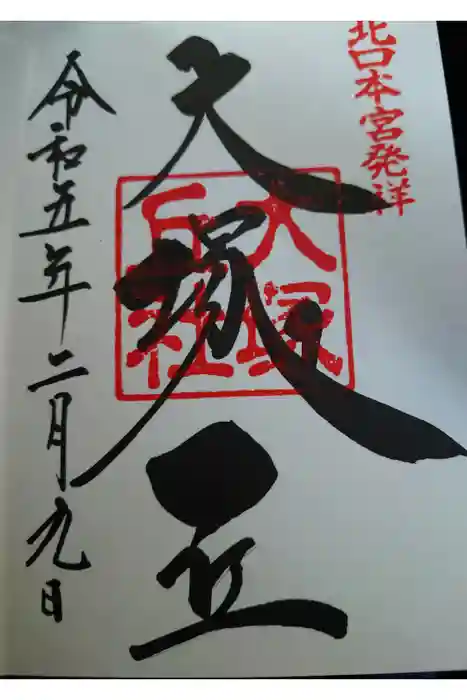 北口本宮発祥
大塚丘
大塚
丘社
令和五年二月九日